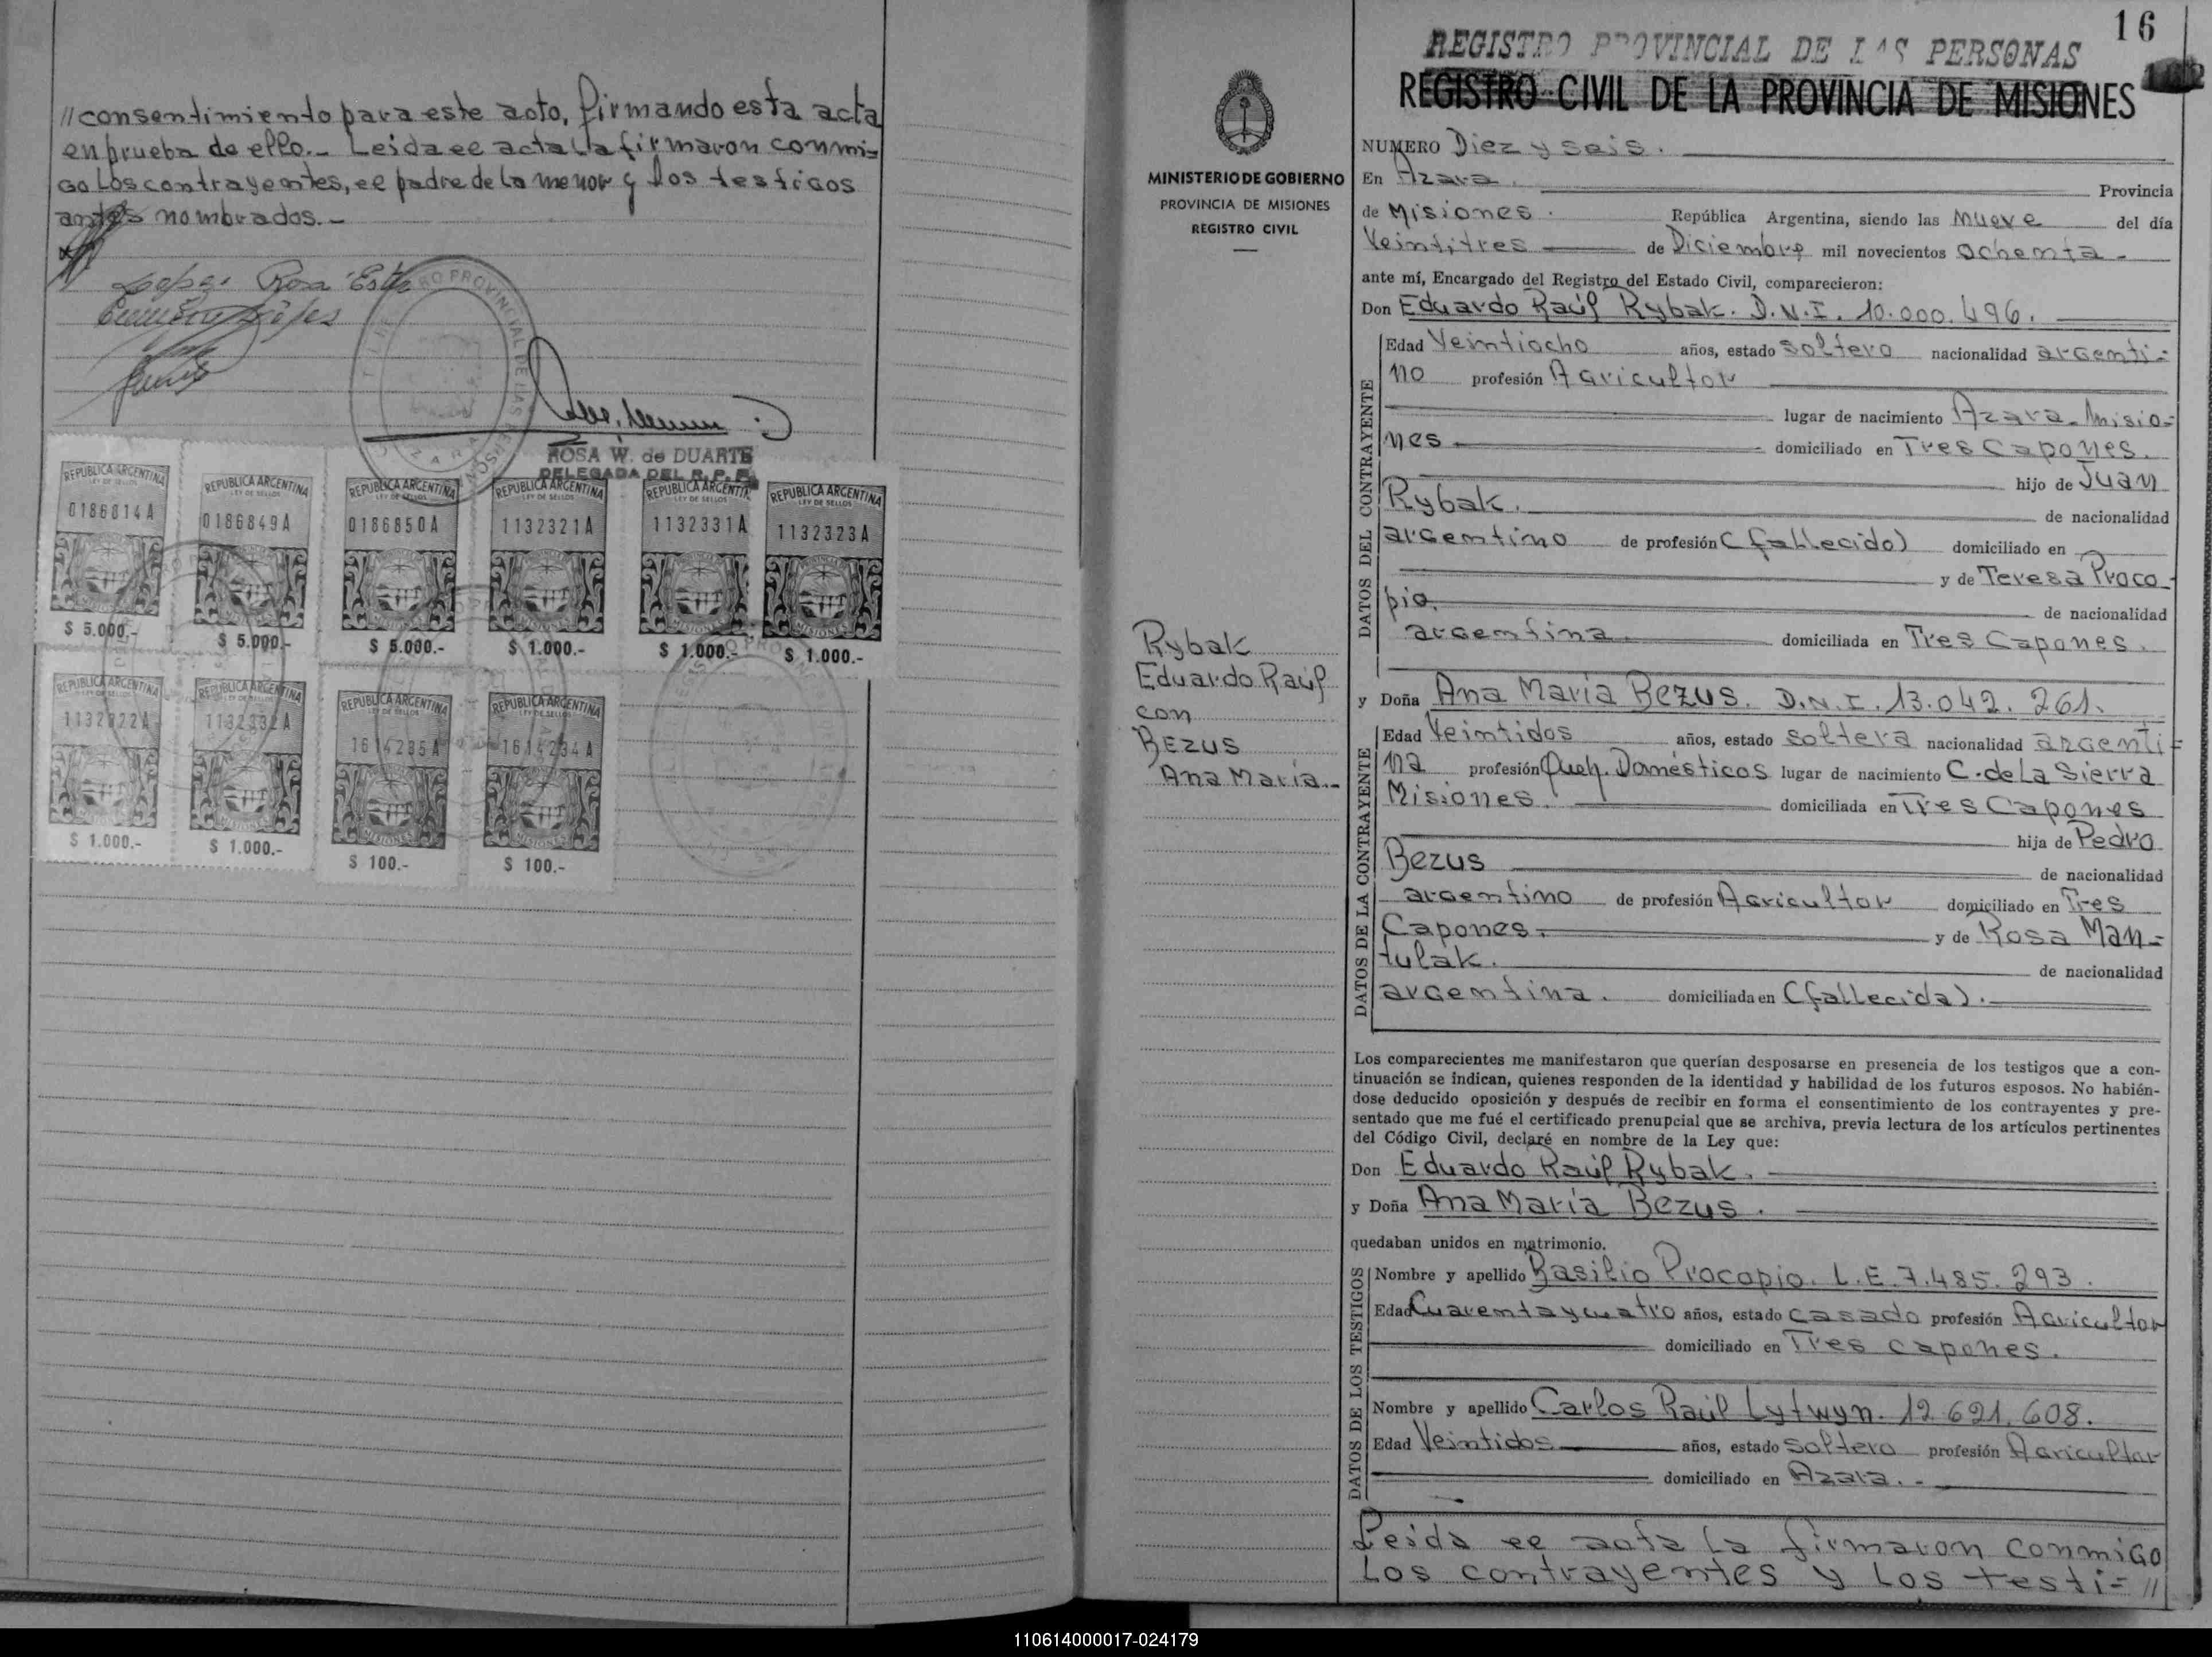 //consentimiento para este acto, firmando esta acta
en prueba de ello.- Leida el acta la firmaron conmi=
go los contrayentes, el padre de la menor y los testigos
antes nombrados.-
Lopez Rosa Ester
ROSA W. de DUARTE
DELEGADA DEL R.P.P.
REPUBLICA ARGENTINA
LEY DE SELLOS
0186814A
MISIONES
$ 5.000.-
REPUBLICA ARGENTINA
LEY DE SELLOS
0186849A
MISIONES
$ 5.000.-
REPUBLICA ARGENTINA
LEY DE SELLOS
0186850A
MISIONES
$ 5.000.-
REPUBLICA ARGENTINA
LEY DE SELLOS
1132321A
MISIONES
$ 1.000.-
REPUBLICA ARGENTINA
LEY DE SELLOS
1132331A
MISIONES
$ 1.000.-
REPUBLICA ARGENTINA
LEY DE SELLOS
1132323A
MISIONES
$ 1.000.-
REPUBLICA ARGENTINA
LEY DE SELLOS
1132322A
MISIONES
$ 1.000.-
REPUBLICA ARGENTINA
LEY DE SELLOS
1132332A
MISIONES
$ 1.000.-
REPUBLICA ARGENTINA
LEY DE SELLOS
1614235A
MISIONES
$ 100.-
REPUBLICA ARGENTINA
LEY DE SELLOS
1614234A
MISIONES
$ 100.-
16
REGISTRO PROVINCIAL DE LAS PERSONAS
REGISTRO CIVIL DE LA PROVINCIA DE MISIONES
MINISTERIO DE GOBIERNO
PROVINCIA DE MISIONES
REGISTRO CIVIL
Rybak
Eduardo Raúl
con
BEZUS
Ana María.-
NUMERO Diez y seis.
En Azara. Provincia
de Misiones. República Argentina, siendo las nueve del día
Veintitres de Diciembre mil novecientos ochenta.
ante mí, Encargado del Registro del Estado Civil, comparecieron:
Don Eduardo Raúl Rybak. D.N.I. 10.000.496.
DATOS DEL CONTRAYENTE
Edad Veintiocho años, estado soltero nacionalidad argenti=
no profesión Agricultor
lugar de nacimiento Azara_Misio=
nes. domiciliado en Tres Capones.
hijo de Juan
Rybak. de nacionalidad
argentino de profesión (fallecido) domiciliado en
y de Teresa Proco_
pio. de nacionalidad
argentina. domiciliada en Tres Capones.
y Doña Ana María Bezus. D.N.I. 13.042.261.
DATOS DE LA CONTRAYENTE
Edad Veintidos años, estado soltera nacionalidad argenti=
na profesión Queh. Domésticos lugar de nacimiento C. de La Sierra
Misiones. domiciliada en Tres Capones
hija de Pedro
Bezus de nacionalidad
argentino de profesión Agricultor domiciliado en Tres
Capones. y de Rosa Man=
tulak. de nacionalidad
argentina. domiciliada en (fallecida).
Los comparecientes me manifestaron que querían desposarse en presencia de los testigos que a con-
tinuación se indican, quienes responden de la identidad y habilidad de los futuros esposos. No habién-
dose deducido oposición y después de recibir en forma el consentimiento de los contrayentes y pre-
sentado que me fué el certificado prenupcial que se archiva, previa lectura de los artículos pertinentes
del Código Civil, declaré en nombre de la Ley que:
Don Eduardo Raúl Rybak.
y Doña Ana María Bezus.
quedaban unidos en matrimonio.
DATOS DE LOS TESTIGOS
Nombre y apellido Basilio Procopio. L.E. 7.485.293.
Edad Cuarenta y cuatro años, estado casado profesión Agricultor
domiciliado en Tres capones.
Nombre y apellido Carlos Raúl Lytwyn. 12.621.608.
Edad Veintidos años, estado soltero profesión Agricultor
domiciliado en Azara.-
Leida el acta la firmaron conmigo
los contrayentes y los testi=//
110614000017-024179